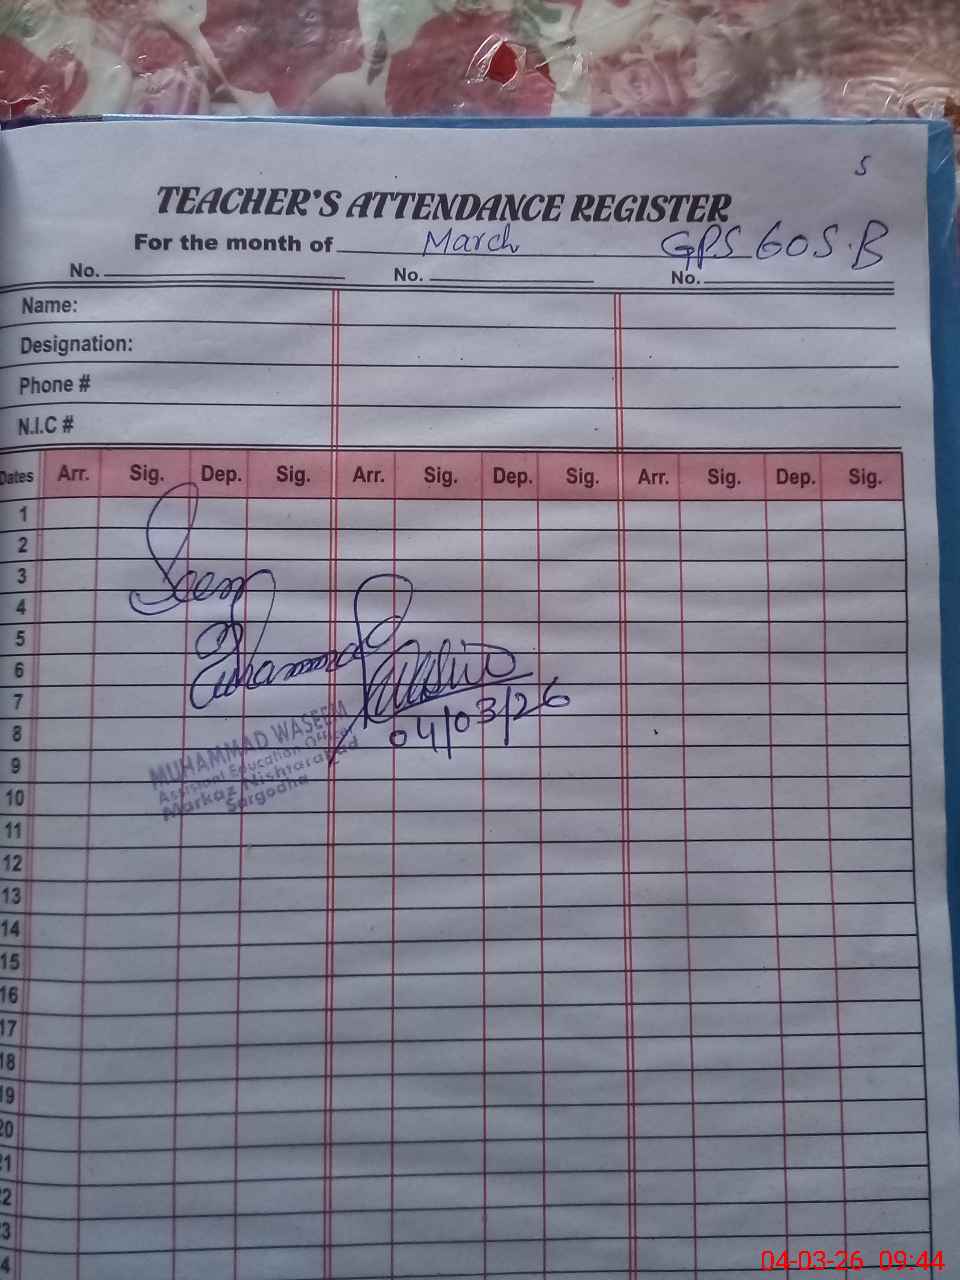 5
TEACHER'S ATTENDANCE REGISTER
For the month of March GPS 60 S.B
No. No. No.
Name:
Designation:
Phone #
N.I.C #
Dates Arr. Sig. Dep. Sig. Arr. Sig. Dep. Sig. Arr. Sig. Dep. Sig.
1
2
3
4
5
6
7
8
9
10
11
12
13
14
15
16
17
18
19
20
21
22
23
24
Seen
04/03/26
MUHAMMAD WASEEM
Assistant Education Officer
Markaz Nishtarabad
Sargodha
04-03-26 09:44